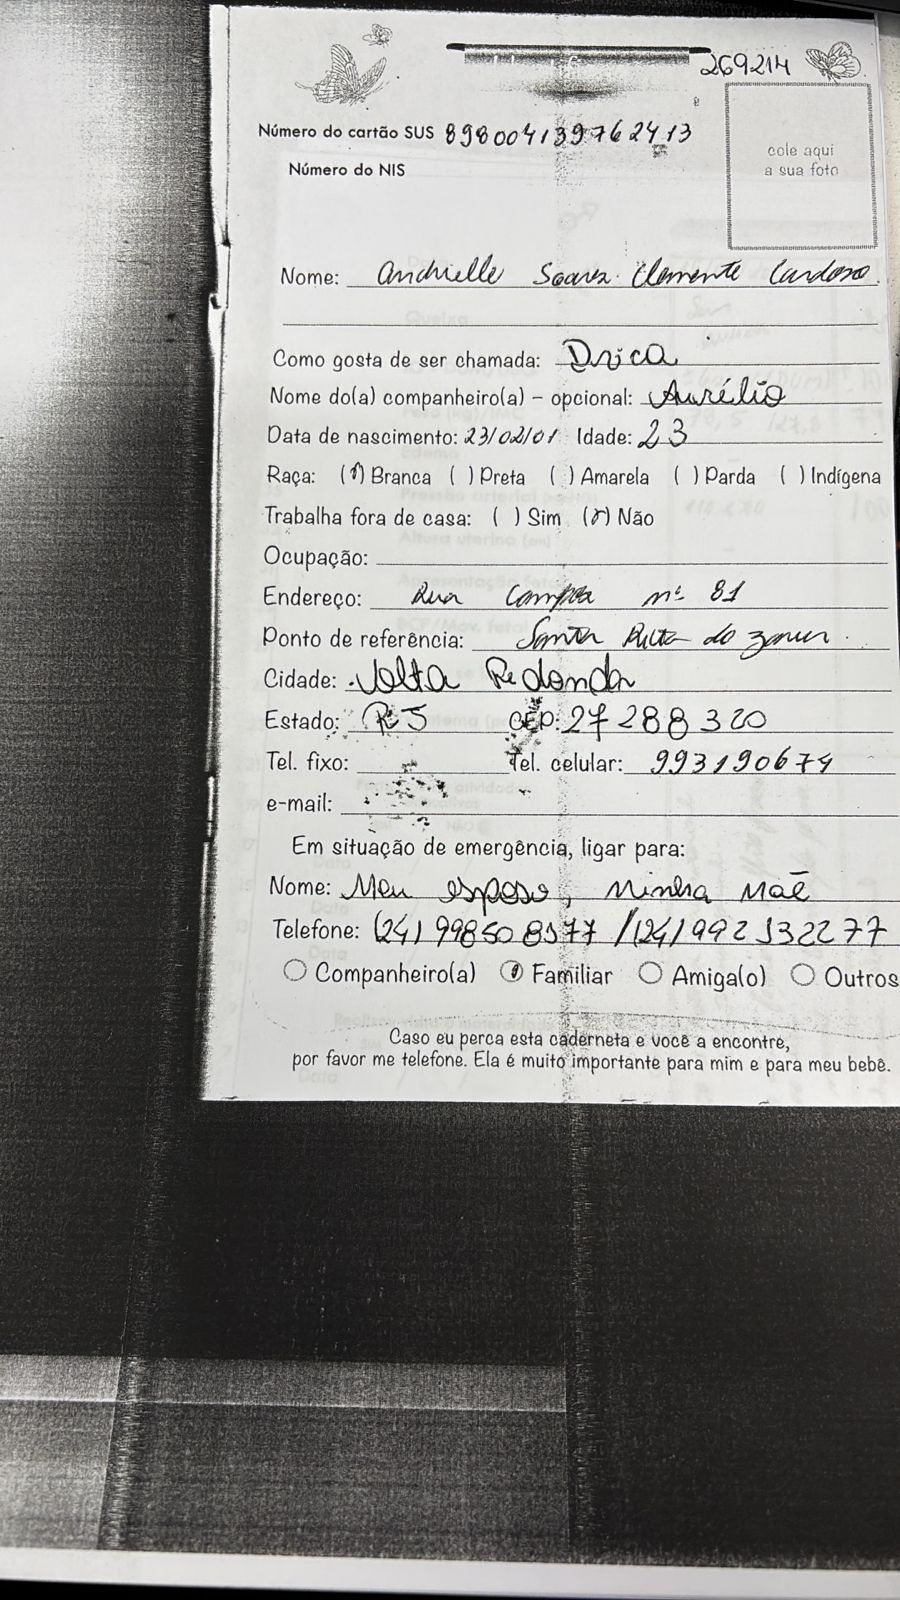 269214
Número do cartão SUS 898004139762413
cole aqui
a sua foto
Número do NIS
Nome: Andrielle Soares Clemente Cardoso
Como gosta de ser chamada: Drica
Nome do(a) companheiro(a) – opcional: Aurélio
Data de nascimento: 23/02/01 Idade: 23
Raça: (X) Branca ( ) Preta ( ) Amarela ( ) Parda ( ) Indígena
Trabalha fora de casa: ( ) Sim (X) Não
Ocupação:
Endereço: Rua nº 81
Ponto de referência: Santa Rita do
Cidade: Volta Redonda
Estado: RJ CEP: 27288320
Tel. fixo: Tel. celular: 993190674
e-mail:
Em situação de emergência, ligar para:
Nome: Meu esposo, minha mãe
Telefone: (24) / (24)
Companheiro(a) Familiar Amiga(o) Outros
Caso eu perca esta caderneta e você a encontre,
por favor me telefone. Ela é muito importante para mim e para meu bebê.